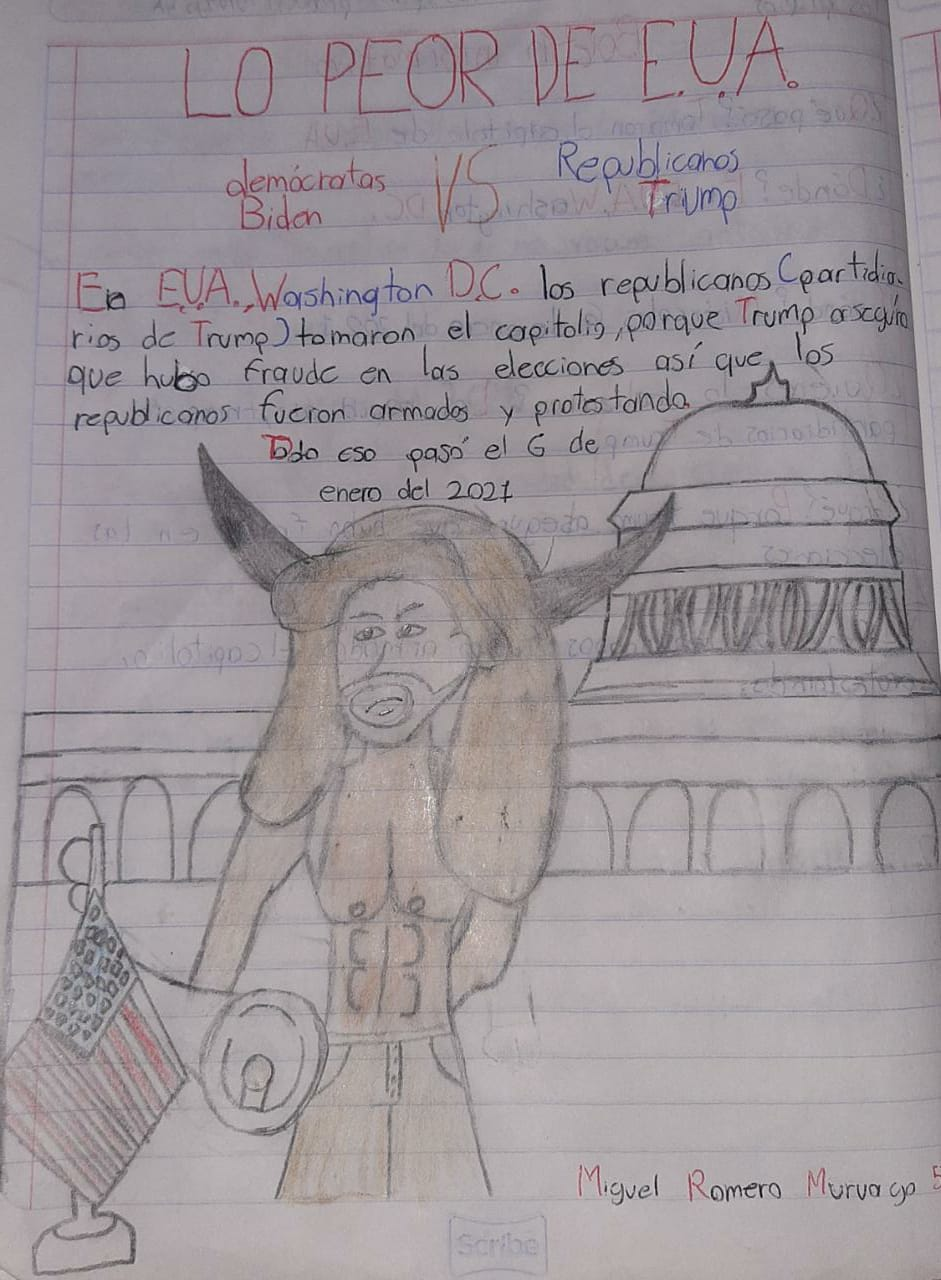 LO PEOR DE E.U.A.
demócratas VS Republicanos
Biden Trump
En E.U.A., Washington D.C. los republicanos (partidia-
rios de Trump) tomaron el capitolio, porque Trump aseguró
que hubo fraude en las elecciones así que, los
republicanos fueron armados y protestando.
Todo eso pasó el 6 de
enero del 2021
Miguel Romero Murua go 5
Scribe